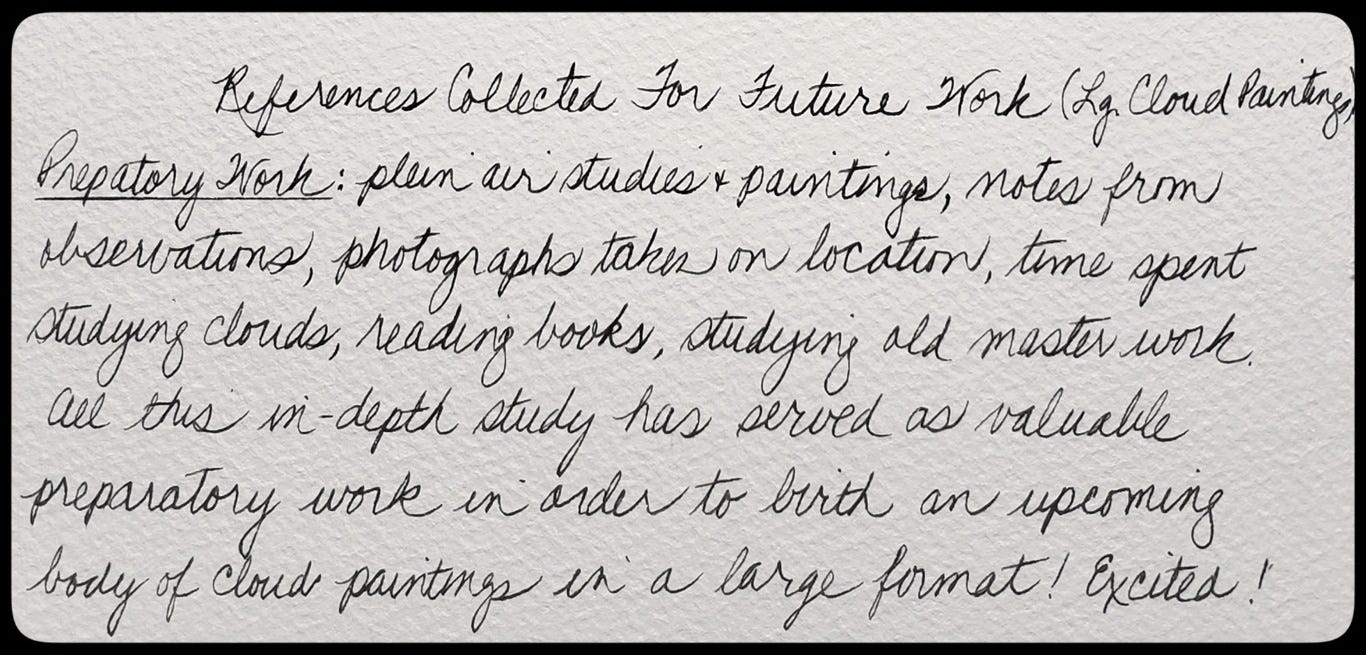 References Collected For Future Work (Lg. Cloud Paintings)
Prepatory Work: plein air studies + paintings, notes from
observations, photographs taken on location, time spent
studying clouds, reading books, studying old master work.
All this in-depth study has served as valuable
preparatory work in order to birth an upcoming
body of cloud paintings in a large format! Excited!